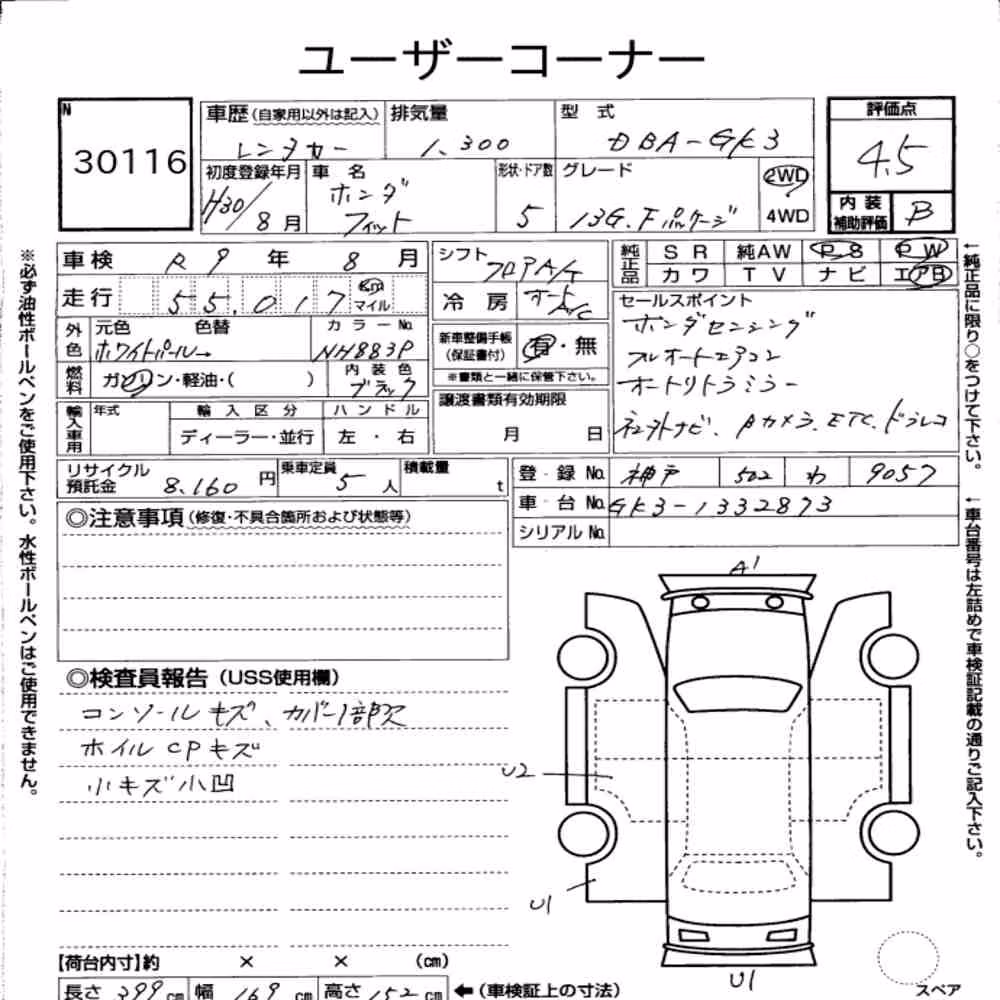 ユーザーコーナー
N
30116
車歴(自家用以外は記入)
レンタカー
排気量
1,300
型 式
DBA-GK3
評価点
4.5
初度登録年月
H30/8月
車 名
ホンダ
フィット
形状・ドア数
5
グレード
13G.Fパッケージ
2WD
4WD
内 装
補助評価
B
車検 R9年 8月
走行 55,017 km
マイル
シフト
フロアA/T
冷 房
オートA/C
純正品
SR 純AW PS PW
カワ TV ナビ エアB
外色
元色 色替
ホワイトパール
カラーNo.
NH883P
新車整備手帳
(保証書付)
有・無
※書類と一緒に保管下さい。
燃料
ガソリン・軽油・( )
内装色
ブラック
セールスポイント
ホンダセンシング
フルオートエアコン
オートリトラミラー
ナビ、Bカメラ、ETC、ドラレコ
輸入車用
年式
輸入区分
ディーラー・並行
ハンドル
左・右
譲渡書類有効期限
月 日
リサイクル
預託金
8,160円
乗車定員
5人
積載量
t
登録No. 神戸 502 わ 9057
車台No. GK3-1332873
シリアルNo.
◎注意事項(修復・不具合箇所および状態等)
◎検査員報告(USS使用欄)
コンソールキズ、カバー1部欠
ホイルCPキズ
小キズ小凹
A1
U2
U1
U1
スペア
【荷台内寸】約 × × (cm)
長さ 399cm 幅 169cm 高さ 152cm ←(車検証上の寸法)
※必ず油性ボールペンをご使用下さい。水性ボールペンはご使用できません。
←純正品に限り○をつけて下さい。
←車台番号は左詰めで車検証記載の通りご記入下さい。